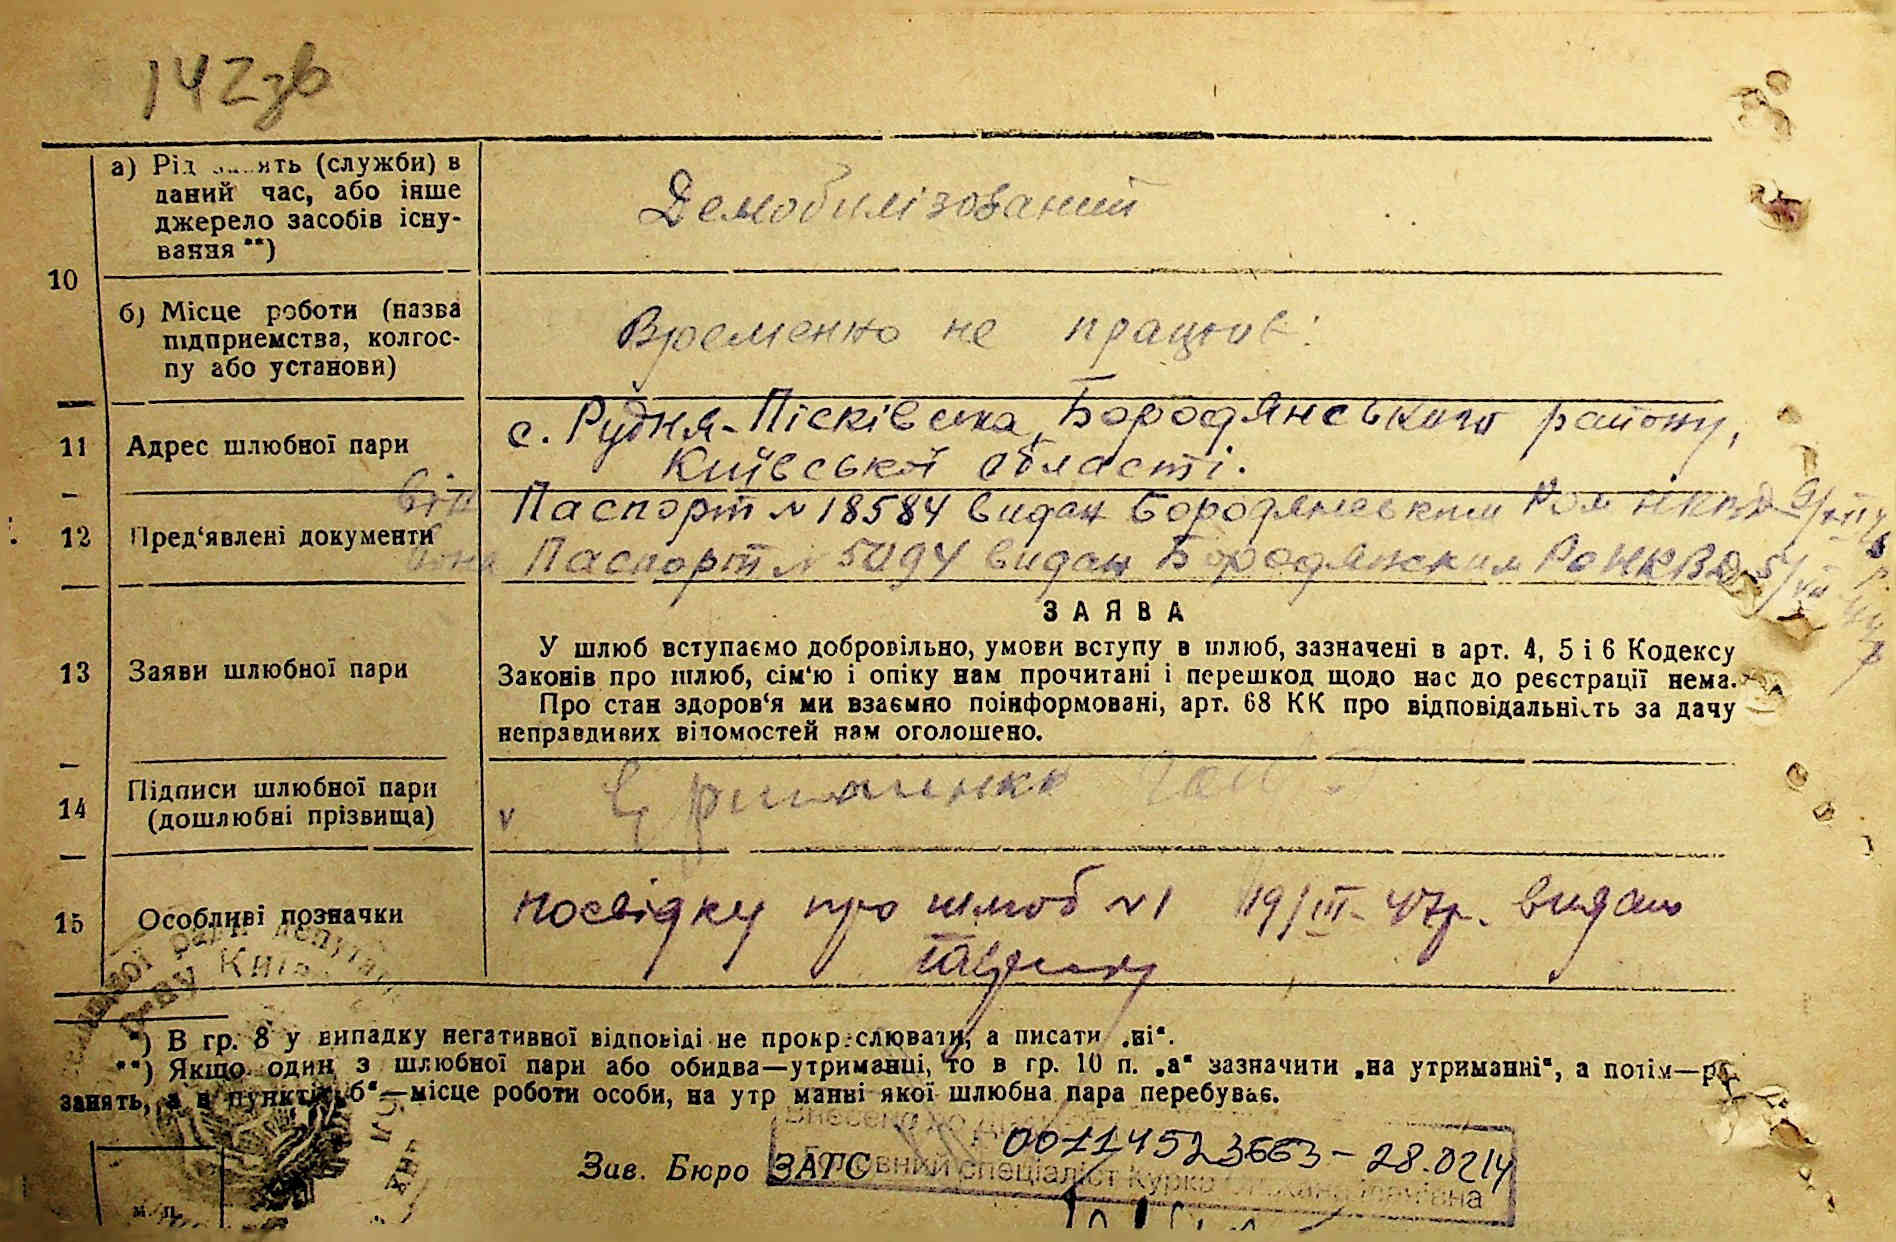 142зв
а) Рід занять (служби) в
даний час, або інше
джерело засобів існу-
вання **)
Демобилізований
10
б) Місце роботи (назва
підприємства, колгос-
пу або установи)
Временно не працюв:
11 Адрес шлюбної пари
с. Рудня-Пісківська, Бородянського району,
Київської області.
12 Пред'явлені документи
він Паспорт № 18584 видан Бородянським НКВД 9/XII
вона Паспорт № видан Бородянским РОНКВД 5/VII
ЗАЯВА
13 Заяви шлюбної пари
У шлюб вступаємо добровільно, умови вступу в шлюб, зазначені в арт. 4, 5 і 6 Кодексу
Законів про шлюб, сім'ю і опіку нам прочитані і перешкод щодо нас до реєстрації нема.
Про стан здоров'я ми взаємно поінформовані, арт. 68 КК про відповідальність за дачу
неправдивих відомостей нам оголошено.
14 Підписи шлюбної пари
(дошлюбні прізвища)
v
15 Особливі позначки
посвідку про шлюб №1 19/III-47р. видано
*) В гр. 8 у випадку негативної відповіді не прокреслювати, а писати „ні“.
**) Якщо один з шлюбної пари або обидва—утриманці, то в гр. 10 п. „а“ зазначити „на утриманні“, а потім—рід
занять, а в пункті „б“—місце роботи особи, на утриманні якої шлюбна пара перебуває.
Внесено до
00114523663-28.0214
Зав. Бюро ЗАГС
Головний спеціаліст Курко
м. п.